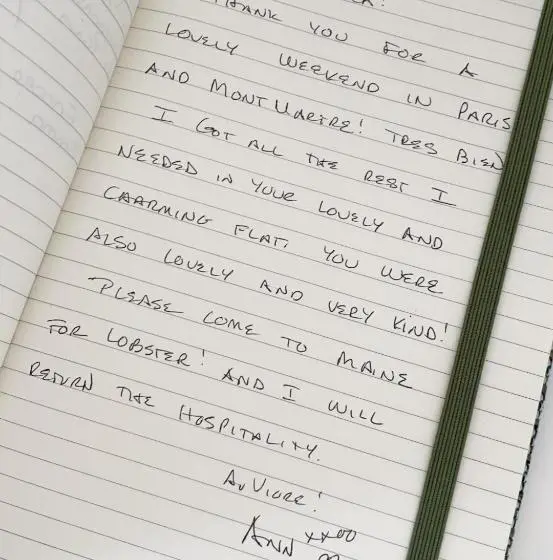 THANK YOU FOR A
LOVELY WEEKEND IN PARIS
AND MONTMARTRE! TRES BIEN
I GOT ALL THE REST I
NEEDED IN YOUR LOVELY AND
CHARMING FLAT. YOU WERE
ALSO LOVELY AND VERY KIND!
PLEASE COME TO MAINE
FOR LOBSTER! AND I WILL
RETURN THE HOSPITALITY.
AU VIORE!
ANN xxoo